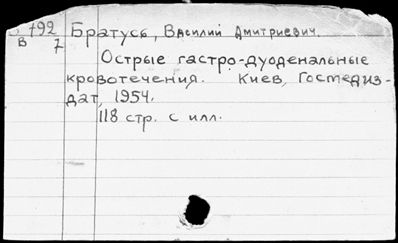 792 Братусь, Василий Дмитриевич.
В 7
Острые гастро-дуоденальные
кровотечения. Киев, Госмедиз-
дат, 1954.
118 стр. с илл.